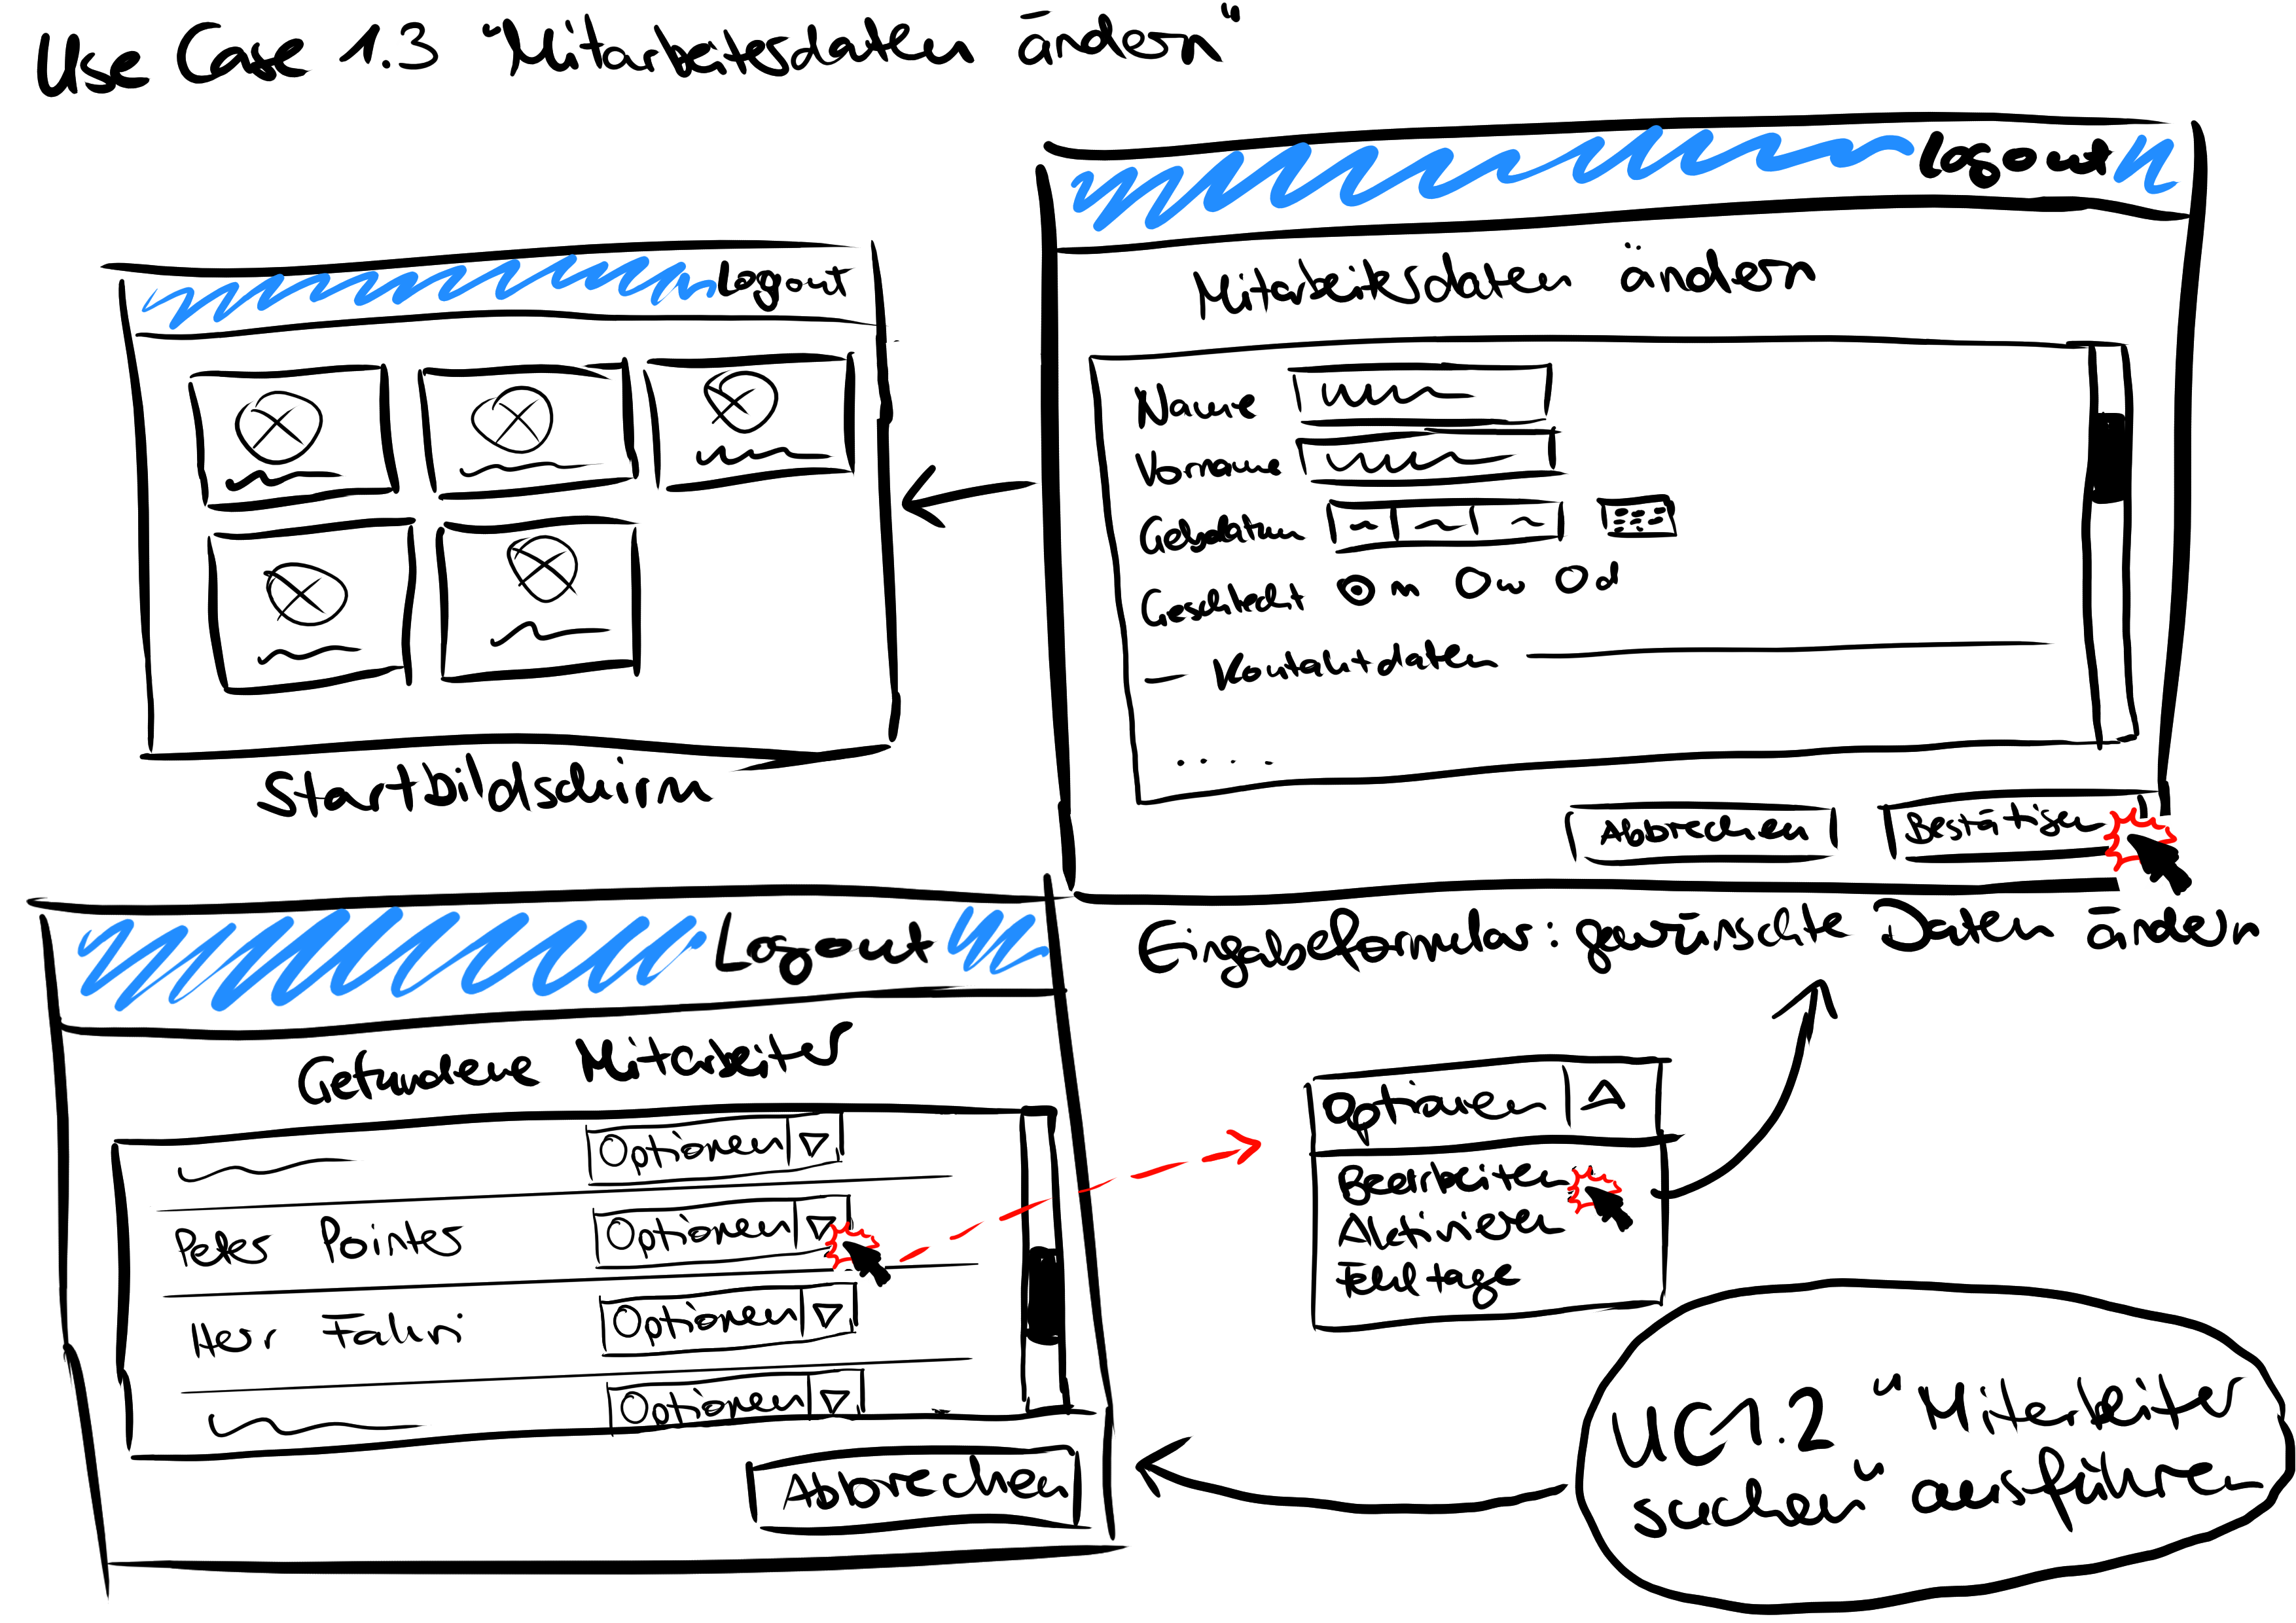 Use Case 1.3 "Mitarbeiterdaten ändern"
Logout
Startbildschirm
Logout
Mitarbeiterdaten ändern
Name
Vorname
Gebdatum
Geschlecht m w d
Kontaktdaten
. . . .
Abbrechen Bestätigen
Eingabeformular: gewünschte Daten ändern
Logout
Gefundene Mitarbeiter
Optionen
Peter Pointer Optionen
Herr Fahri Optionen
Optionen
Abbrechen
Optionen
Bearbeiten
Aktivieren
Fehltage
UC 1.2 "Mitarbeiter
suchen" ausführen